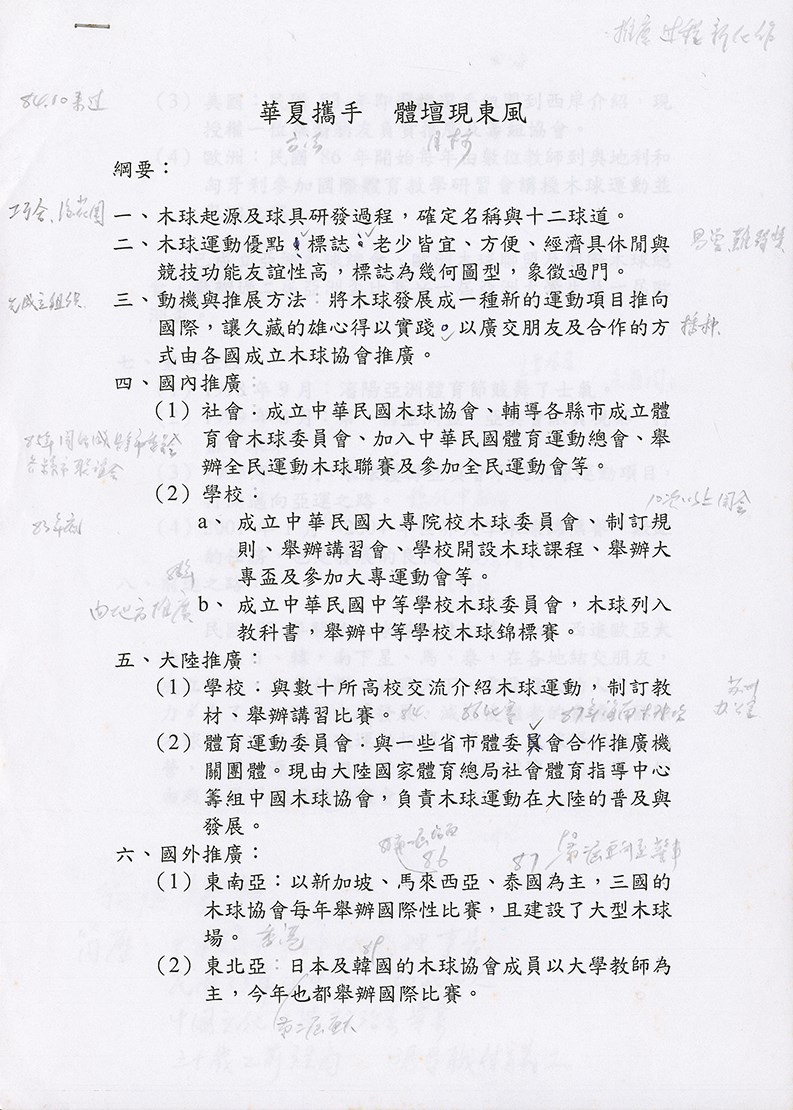 華夏攜手　體壇現東風
綱要：
一、木球起源及球具研發過程，確定名稱與十二球道。
二、木球運動優點、標誌：老少皆宜、方便、經濟具休閒與
競技功能友誼性高，標誌為幾何圖型，象徵過門。
三、動機與推展方法：將木球發展成一種新的運動項目推向
國際，讓久藏的雄心得以實踐。以廣交朋友及合作的方
式由各國成立木球協會推廣。
四、國內推廣：
（1）社會：成立中華民國木球協會、輔導各縣市成立體
育會木球委員會、加入中華民國體育運動總會、舉
辦全民運動木球聯賽及參加全民運動會等。
（2）學校：
a、成立中華民國大專院校木球委員會、制訂規
則、舉辦講習會、學校開設木球課程、舉辦大
專盃及參加大專運動會等。
由地方推廣
b、成立中華民國中等學校木球委員會，木球列入
教科書，舉辦中等學校木球錦標賽。
五、大陸推廣：
（1）學校：與數十所高校交流介紹木球運動，制訂教
材、舉辦講習比賽。84. 86比賽
（2）體育運動委員會：與一些省市體委員會合作推廣機
關團體。現由大陸國家體育總局社會體育指導中心
籌組中國木球協會，負責木球運動在大陸的普及與
發展。
86 87
六、國外推廣：
（1）東南亞：以新加坡、馬來西亞、泰國為主，三國的
木球協會每年舉辦國際性比賽，且建設了大型木球
場。香港 89
（2）東北亞：日本及韓國的木球協會成員以大學教師為
主，今年也都舉辦國際比賽。